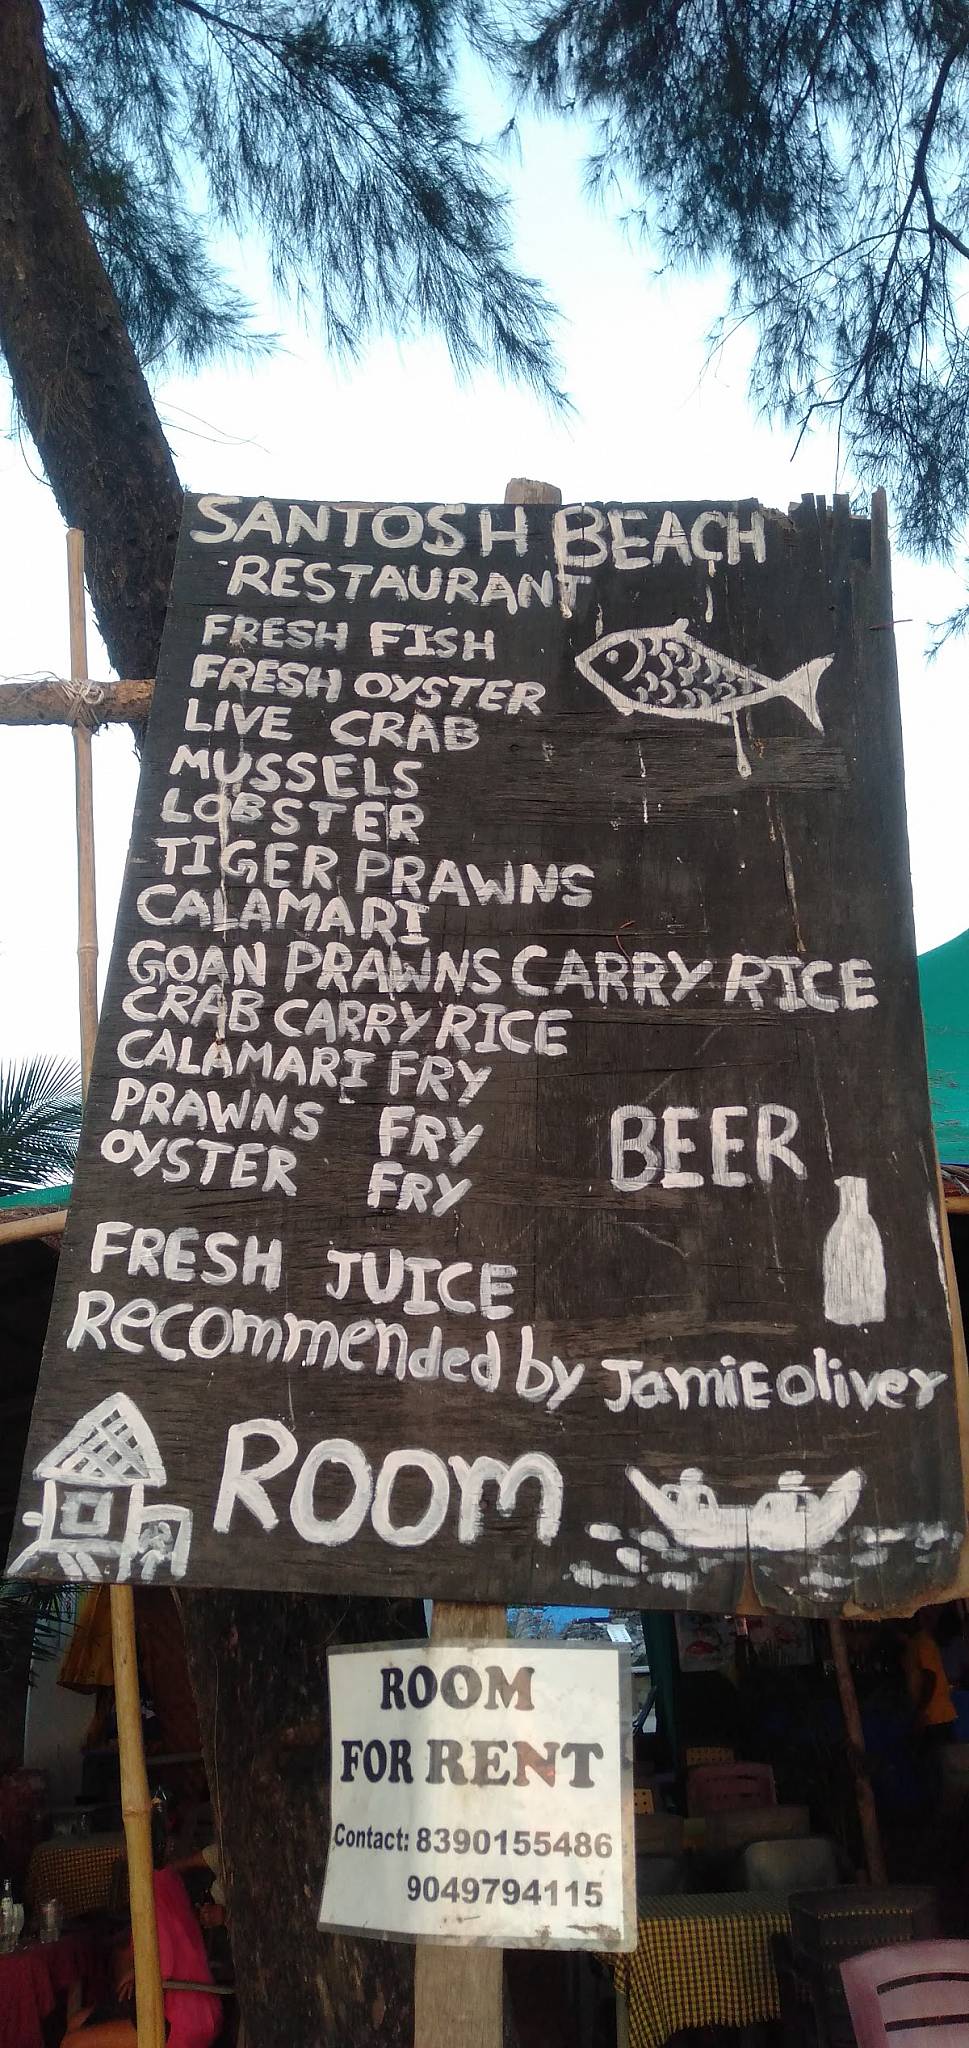 SANTOSH BEACH
RESTAURANT
FRESH FISH
FRESH OYSTER
LIVE CRAB
MUSSELS
LOBSTER
TIGER PRAWNS
CALAMARI
GOAN PRAWNS CARRY RICE
CRAB CARRY RICE
CALAMARI FRY
PRAWNS FRY
OYSTER FRY
BEER
FRESH JUICE
Recommended by JamiE oliver
ROOm
ROOM
FOR RENT
Contact: 8390155486
9049794115